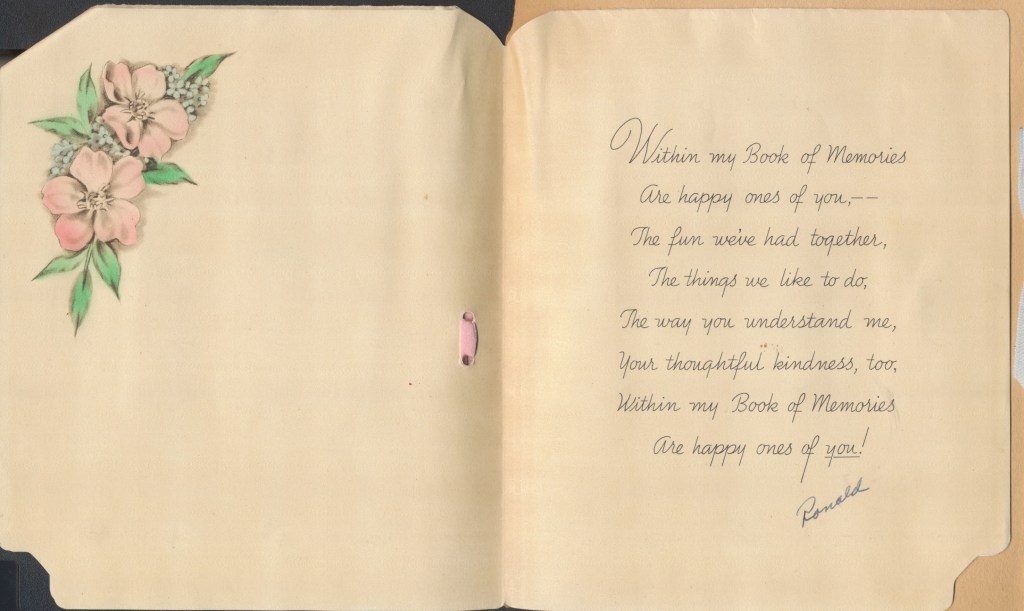 Within my Book of Memories
Are happy ones of you,--
The fun we've had together,
The things we like to do,
The way you understand me,
Your thoughtful kindness, too,
Within my Book of Memories
Are happy ones of you!
Ronald